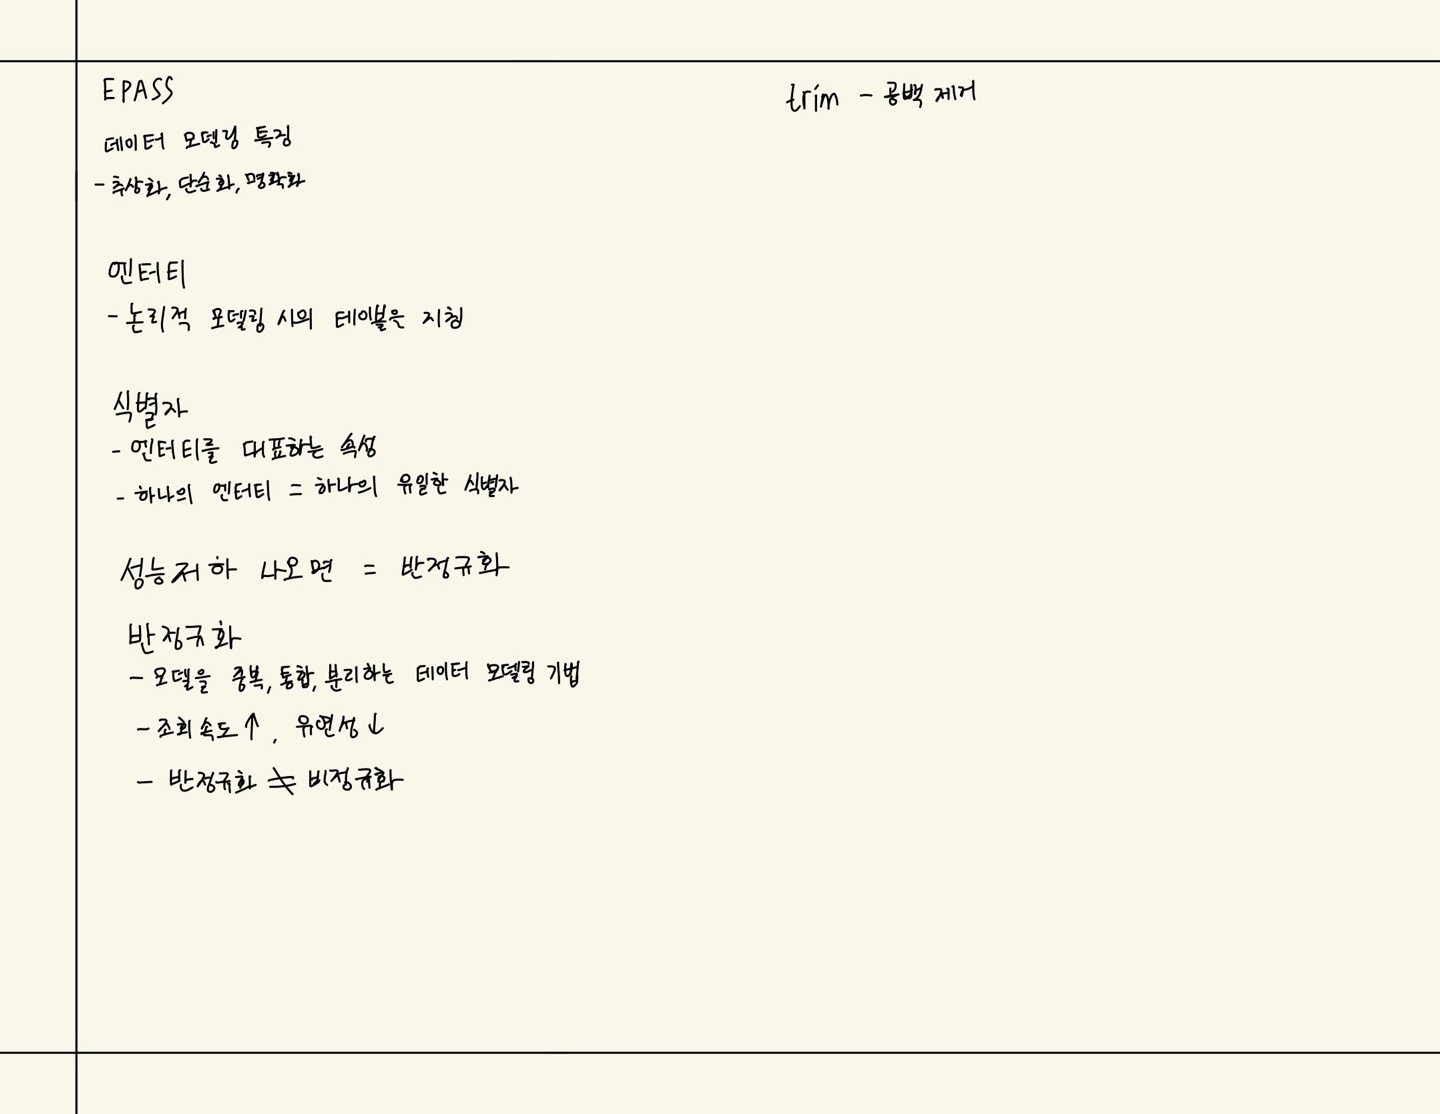 EPASS
데이터 모델링 특징
- 추상화, 단순화, 명확화
엔터티
- 논리적 모델링 시의 테이블은 지칭
식별자
- 엔터티를 대표하는 속성
- 하나의 엔터티 = 하나의 유일한 식별자
성능저하 나오면 = 반정규화
반정규화
- 모델을 중복, 통합, 분리하는 데이터 모델링 기법
- 조회속도↑, 유연성↓
- 반정규화 ≠ 비정규화
trim - 공백 제거